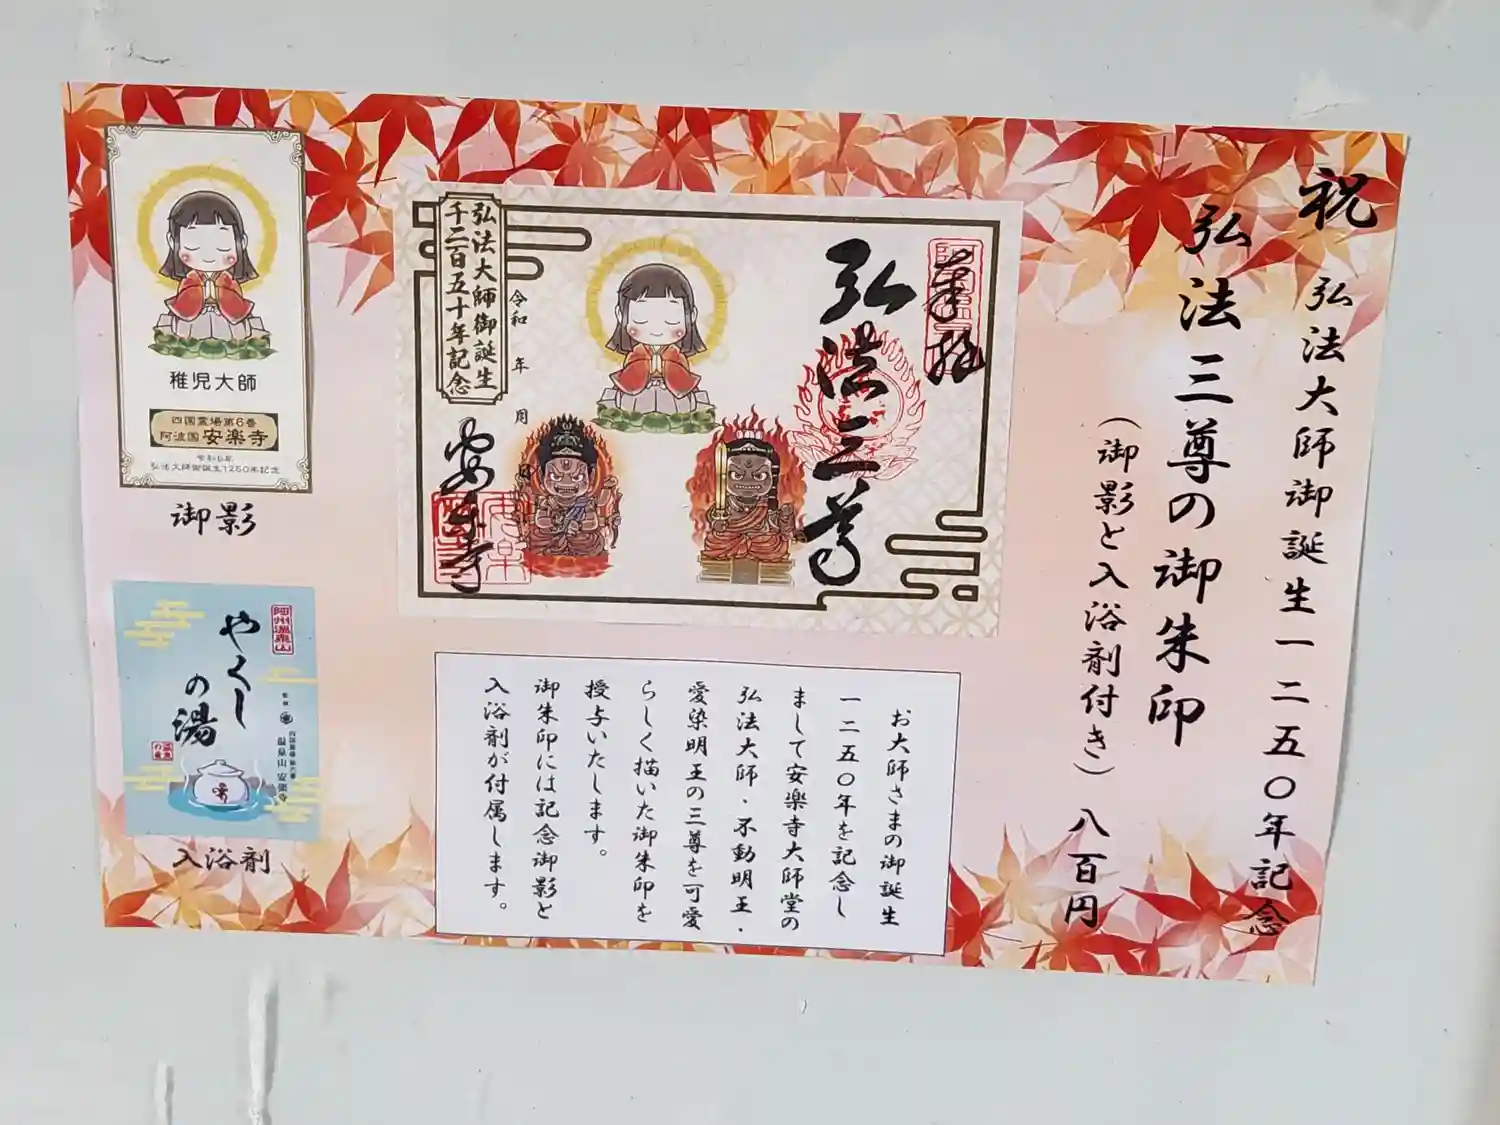 祝 弘法大師御誕生一二五〇年記念
弘法三尊の御朱印
(御影と入浴剤付き) 八百円
奉拝
弘法三尊
令和 年 月 日
安楽寺
弘法大師御誕生
千二百五十年記念
お大師さまの御誕生
一二五〇年を記念し
まして安楽寺大師堂の
弘法大師・不動明王・
愛染明王の三尊を可愛
らしく描いた御朱印を
授与いたします。
御朱印には記念御影と
入浴剤が付属します。
稚児大師
四国霊場第6番
阿波国 安楽寺
令和5年
弘法大師御誕生1250年記念
御影
阿州温泉山
やくし
の湯
四国霊場 第六番
温泉山 安楽寺
入浴剤